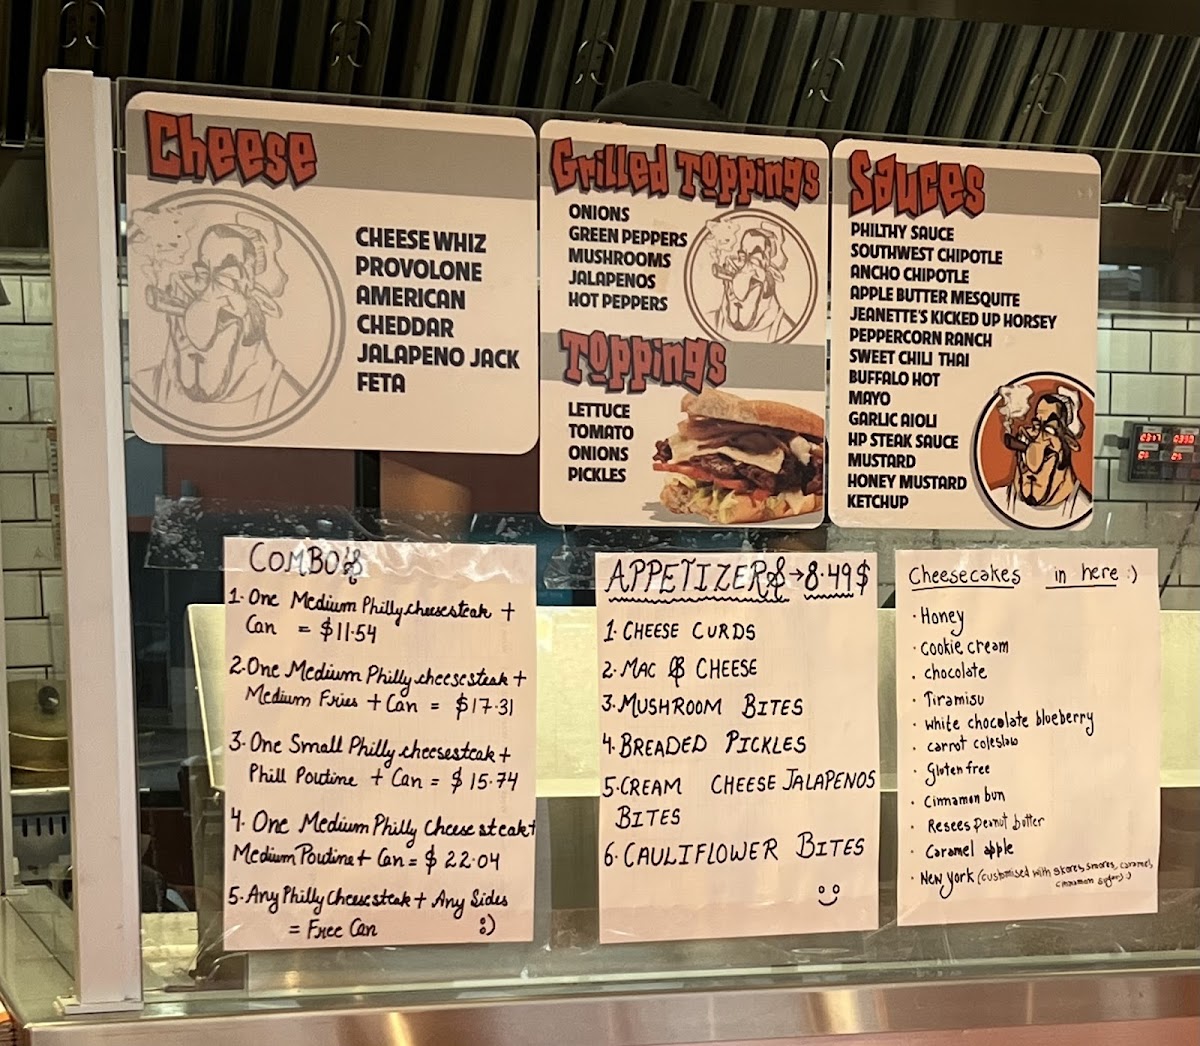 Cheese
CHEESE WHIZ
PROVOLONE
AMERICAN
CHEDDAR
JALAPENO JACK
FETA
Grilled Toppings
ONIONS
GREEN PEPPERS
MUSHROOMS
JALAPENOS
HOT PEPPERS
Toppings
LETTUCE
TOMATO
ONIONS
PICKLES
Sauces
PHILTHY SAUCE
SOUTHWEST CHIPOTLE
ANCHO CHIPOTLE
APPLE BUTTER MESQUITE
JEANETTE'S KICKED UP HORSEY
PEPPERCORN RANCH
SWEET CHILI THAI
BUFFALO HOT
MAYO
GARLIC AIOLI
HP STEAK SAUCE
MUSTARD
HONEY MUSTARD
KETCHUP
COMBO's
1. One Medium Philly cheesesteak +
Can = $11.54
2. One Medium Philly cheesesteak +
Medium Fries + Can = $17.31
3. One Small Philly cheesesteak +
Phill Poutine + Can = $15.74
4. One Medium Philly Cheese steak +
Medium Poutine + Can = $22.04
5. Any Philly Cheesesteak + Any Sides
= Free Can :)
APPETIZERS → 8.49$
1. CHEESE CURDS
2. MAC & CHEESE
3. MUSHROOM BITES
4. BREADED PICKLES
5. CREAM CHEESE JALAPENOS
BITES
6. CAULIFLOWER BITES
Cheesecakes in here :)
· Honey
· Cookie cream
· chocolate
· Tiramisu
· white chocolate blueberry
· carrot coleslaw
· Gluten free
· Cinnamon bun
· Resees peanut butter
· Caramel apple
· New york (customised with skores, smores, caramel,
cinnamon sugar) :)